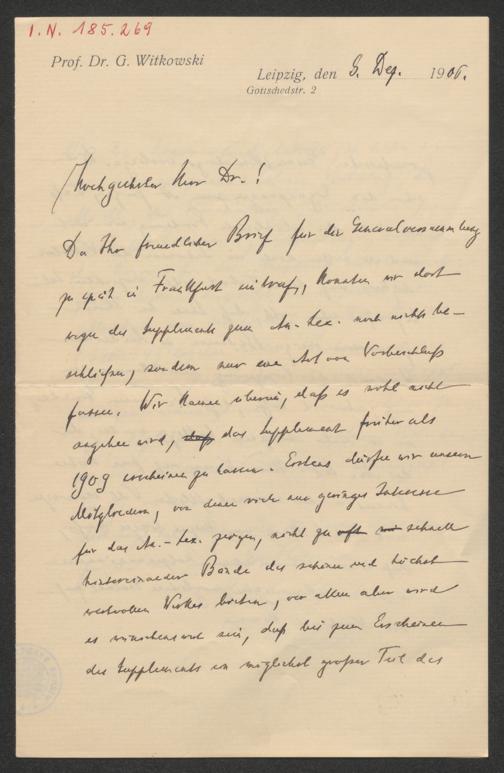 I.N. 185.269
Prof. Dr. G. Witkowski
Leipzig, den 5. Dez. 1906.
Gottschedstr. 2
Hochgeehrter Herr Dr.!
Da Ihr freundlicher Brief für die Generalversammlung
zu spät in Frankfurt eintraf, konnten wir dort
wegen des Supplements zum An.-Lex. noch nichts be-
schließen, sondern nur eine Art von Vorbeschluß
fassen. Wir kamen überein, daß es wohl nicht
angehen wird, daß das Supplement früher als
1909 erscheinen zu lassen. Erstens dürfen wir unseren
Mitgliedern, von denen viele nur geringes Interesse
für das An.-Lex. zeigen, nicht zu oft schnell
hintereinander Bände des schönen und höchst
wertvollen Werkes bieten, vor allem aber wird
es wünschenswert sein, daß bis zum Erscheinen
des Supplements ein möglichst großer Teil des